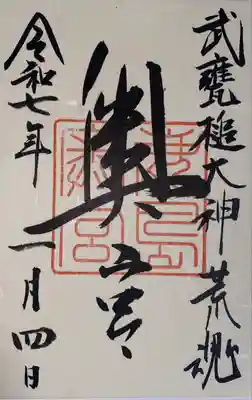 武甕槌大神 荒魂
奥宮
令和七年 一月四日